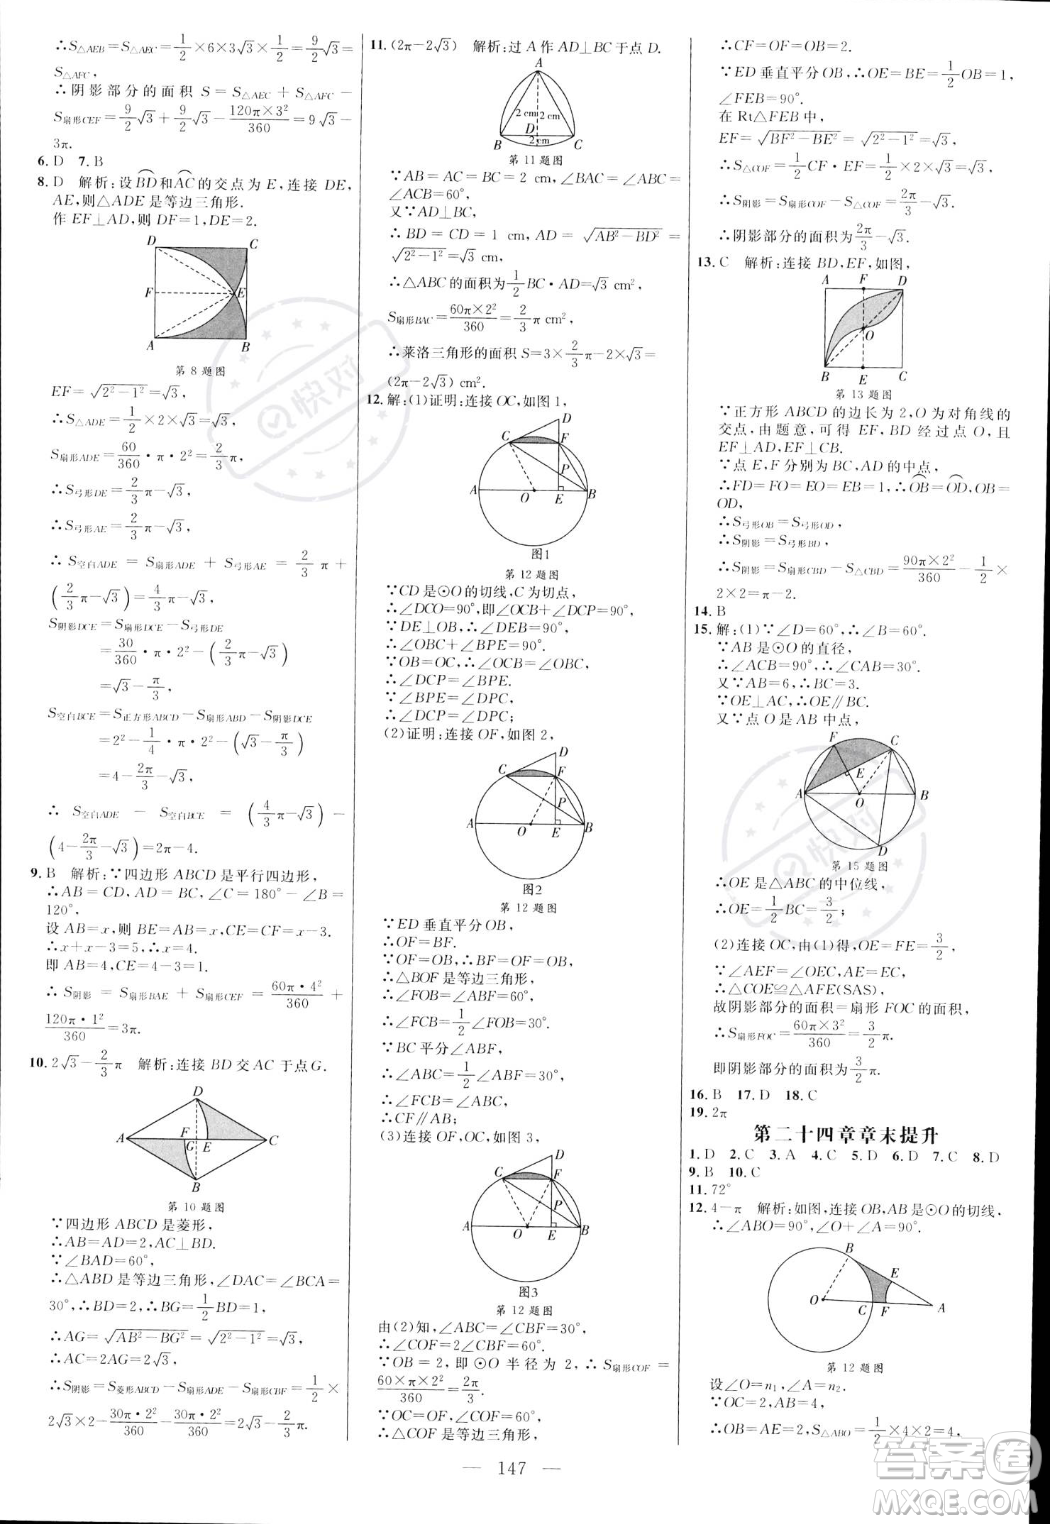 ∴S△AEB=S△AEC=1/2×6×3√3×1/2=9/2√3=
S△AFC,
∴阴影部分的面积 S=S△AEC+S△AFC-
S扇形CEF=9/2√3+9/2√3-120π×3²/360=9√3-
3π.
6. D 7. B
8. D 解析:设BD和AC的交点为E,连接 DE,
AE,则△ADE是等边三角形.
作 EF⊥AD,则 DF=1,DE=2.
D C
F E
A B
第 8 题图
EF=√2²-1²=√3,
∴S△ADE=1/2×2×√3=√3,
S扇形ADE=60/360·π·2²=2/3π,
∴S弓形DE=2/3π-√3,
∴S弓形AE=2/3π-√3,
∴ S空白ADE = S扇形ADE + S弓形AE = 2/3 π +
(2/3π-√3)=(4/3π-√3),
S阴影DCE=S扇形DCE-S弓形DE
=30/360·π·2²-(2/3π-√3)
=√3-π/3,
S空白BCE=S正方形ABCD-S扇形ABD-S阴影DCE
=2²-1/4·π·2²-(√3-π/3)
=4-2π/3-√3,
∴ S空白ADE - S空白BCE = (4/3π-√3) -
(4-2π/3-√3)=2π-4.
9. B 解析:∵四边形 ABCD 是平行四边形,
∴AB=CD,AD=BC,∠C=180°-∠B=
120°,
设 AB=x,则 BE=AB=x,CF=CE=x-3.
∴x+x-3=5,∴x=4.
即 AB=4,CE=x-3=1.
∴S阴影 = S扇形BAE + S扇形CEF = 60π·4²/360 +
120π·1²/360=3π.
10. 2√3-2/3π 解析:连接 BD 交AC 于点G.
D
A F G E C
B
第 10 题图
∵四边形 ABCD 是菱形,
∴AB=AD=2,AC⊥BD.
∵∠BAD=60°,
∴△ABD 是等边三角形,∠DCA=∠BCA=
30°,∴BD=2,∴BG=1/2BD=1,
∴AG=√AB²-BG²=√2²-1²=√3,
∴AC=2AG=2√3,
∴S阴影=S菱形ABCD-S扇形ADE-S扇形CBF=1/2×
2√3×2-30π·2²/360-30π·2²/360=2√3-2/3π.
11. (2π-2√3) 解析:过 A 作 AD⊥BC 于点 D.
A
2 cm 2 cm
D
B 2 cm C
第 11 题图
∵AB=AC=BC=2 cm,∠BAC=∠ABC=
∠ACB=60°,
又∵AD⊥BC,
∴ BD = CD = 1 cm, AD = √AB²-BD² =
√2²-1²=√3,
∴△ABC 的面积为1/2BC·AD=√3 cm²,
S扇形BAC=60π×2²/360=2/3π cm²,
∴莱洛三角形的面积 S=3×2/3π-2×√3=
(2π-2√3) cm².
12. 解:(1)证明:连接 OC,如图 1,
D
C F
P
A O E B
图1
第 12 题图
∵CD 是⊙O 的切线,C 为切点,
∴∠DCO=90°,即∠OCB+∠DCP=90°,
∵DE⊥OB,∴∠DEB=90°,
∴∠OBC+∠BPE=90°,
∵OB=OC,∴∠OCB=∠OBC,
∴∠DCP=∠BPE.
∵∠BPE=∠DPC,
∴∠DCP=∠DPC;
(2)证明:连接 OF,如图 2,
D
C F
P
A O E B
图2
第 12 题图
∵ED 垂直平分 OB,
∴OF=BF.
∵OF=OB,∴BF=OF=OB,
∴△BOF 是等边三角形,
∴∠FOB=∠ABF=60°,
∴∠FCB=1/2∠FOB=30°.
∵BC 平分∠ABF,
∴∠ABC=1/2∠ABF=30°,
∴∠FCB=∠ABC,
∴CF∥AB;
(3)连接 OF、OC,如图 3,
D
C F
P
A O E B
图3
第 12 题图
由(2)知,∠ABC=∠CBF=30°,
∴∠COF=2∠CBF=60°.
∵OB=2,即 ⊙O 半径为 2,∴S扇形COF=
60×π×2²/360=2π/3.
∵OC=OF,∠COF=60°,
∴△COF 是等边三角形,
∴CF=OF=OB=2.
∵ED 垂直平分 OB,∴OE=BE=1/2OB=1,
∠FEB=90°.
在 Rt△FEB 中,
EF=√BF²-BE²=√2²-1²=√3,
∴S△COF=1/2CF·EF=1/2×2×√3=√3,
∴S阴影=S扇形COF-S△COF=2π/3-√3.
∴阴影部分的面积为2π/3-√3.
13. C 解析:连接 BD,EF,如图,
A F D
O
B E C
第 13 题图
∵正方形 ABCD 的边长为 2,O 为对角线的
交点,由题意,可得 EF,BD 经过点 O,且
EF⊥AD,EF⊥CB.
∵点 E,F 分别为 BC,AD 的中点,
∴FD=FO=EO=EB=1,∴OB=OD,OB=
OD,
∴S弓形OB=S弓形OD,
∴S阴影=S弓形BD,
∴S阴影=S扇形CBD-S△CBD=90π×2²/360-1/2×
2×2=π-2.
14. B
15. 解:(1)∵∠D=60°,∴∠B=60°,
∵AB 是⊙O 的直径,
∴∠ACB=90°,∴∠CAB=30°.
又∵AB=6,∴BC=3.
∵OE⊥AC,∴OE∥BC.
又∵点 O 是 AB 中点,
F C
E
A O B
D
第 15 题图
∴OE 是△ABC 的中位线,
∴OE=1/2BC=3/2;
(2)连接 OC,由(1)得,OE=FE=3/2,
∵∠AEF=∠OEC,AE=EC,
∴△COE≌△AFE(SAS),
故阴影部分的面积=扇形 FOC 的面积,
∴S扇形FOC=60π×3²/360=3/2π.
即阴影部分的面积为3/2π.
16. B 17. D 18. C
19. 2π
第二十四章章末提升
1. D 2. C 3. A 4. C 5. D 6. D 7. C 8. D
9. B 10. C
11. 72°
12. 4-π 解析:如图,连接 OB,AB 是⊙O 的切线,
∴∠ABO=90°,∠O+∠A=90°,
B E
O C F A
第 12 题图
设∠O=n₁,∠A=n₂.
∵OC=2,AB=4,
∴OB=OC=2,S△ABO=1/2×4×2=4,
147
快对
快对
答案卷
MXQE.COM